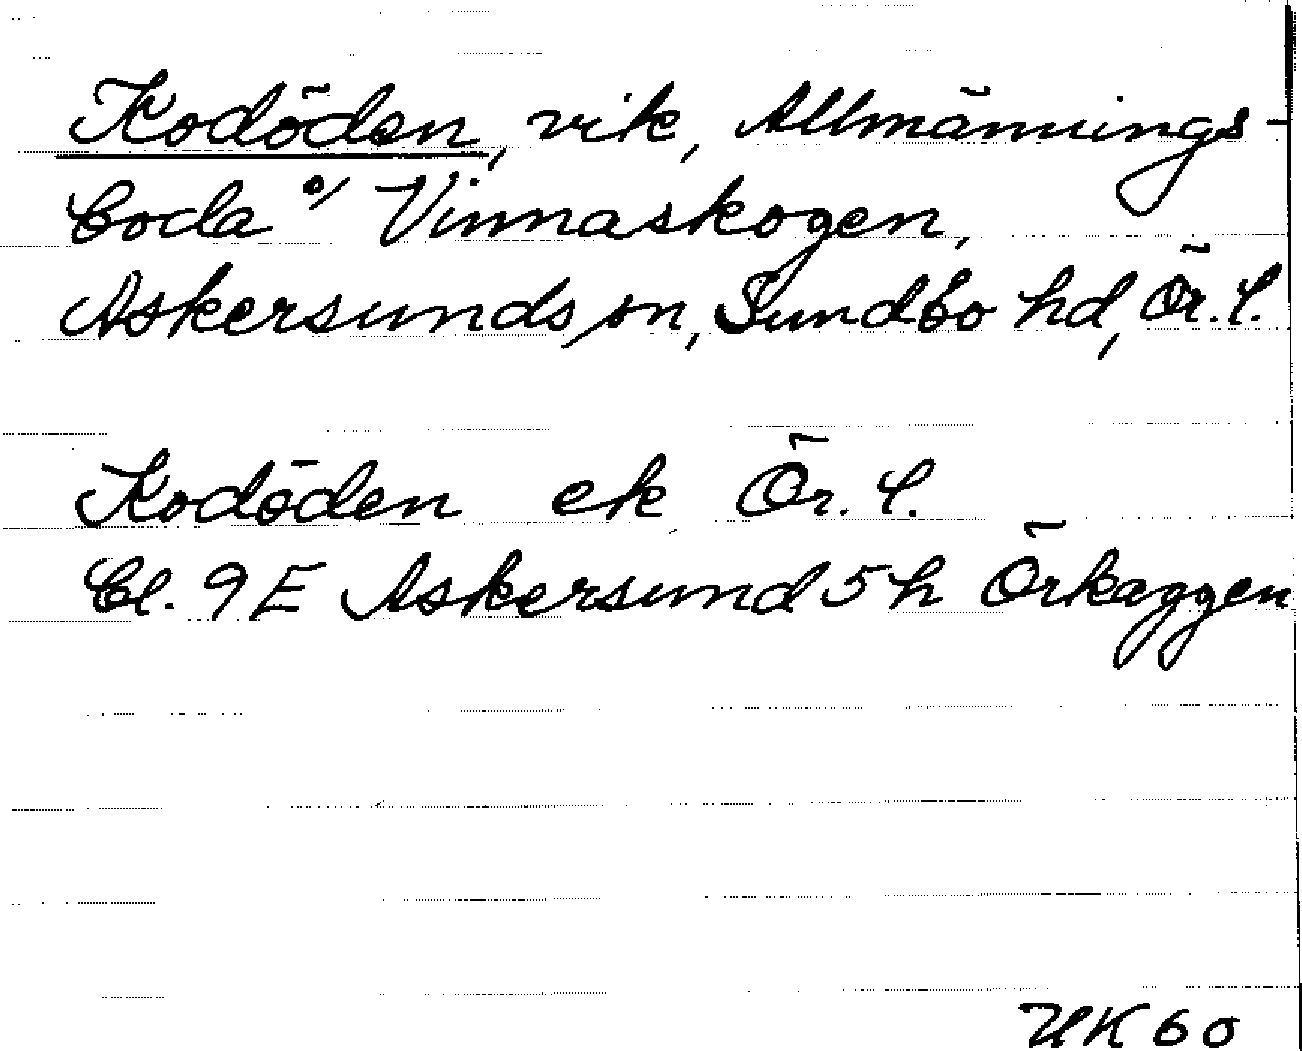 Kodöden, vik, Allmännings-
boda o/ Vinnaskogen,
Askersunds sn, Sundbo hd, Ör. l.
Kodöden ek Ör. l.
Bl. 9 E Askersund 5 h Örkaggen
UK 60